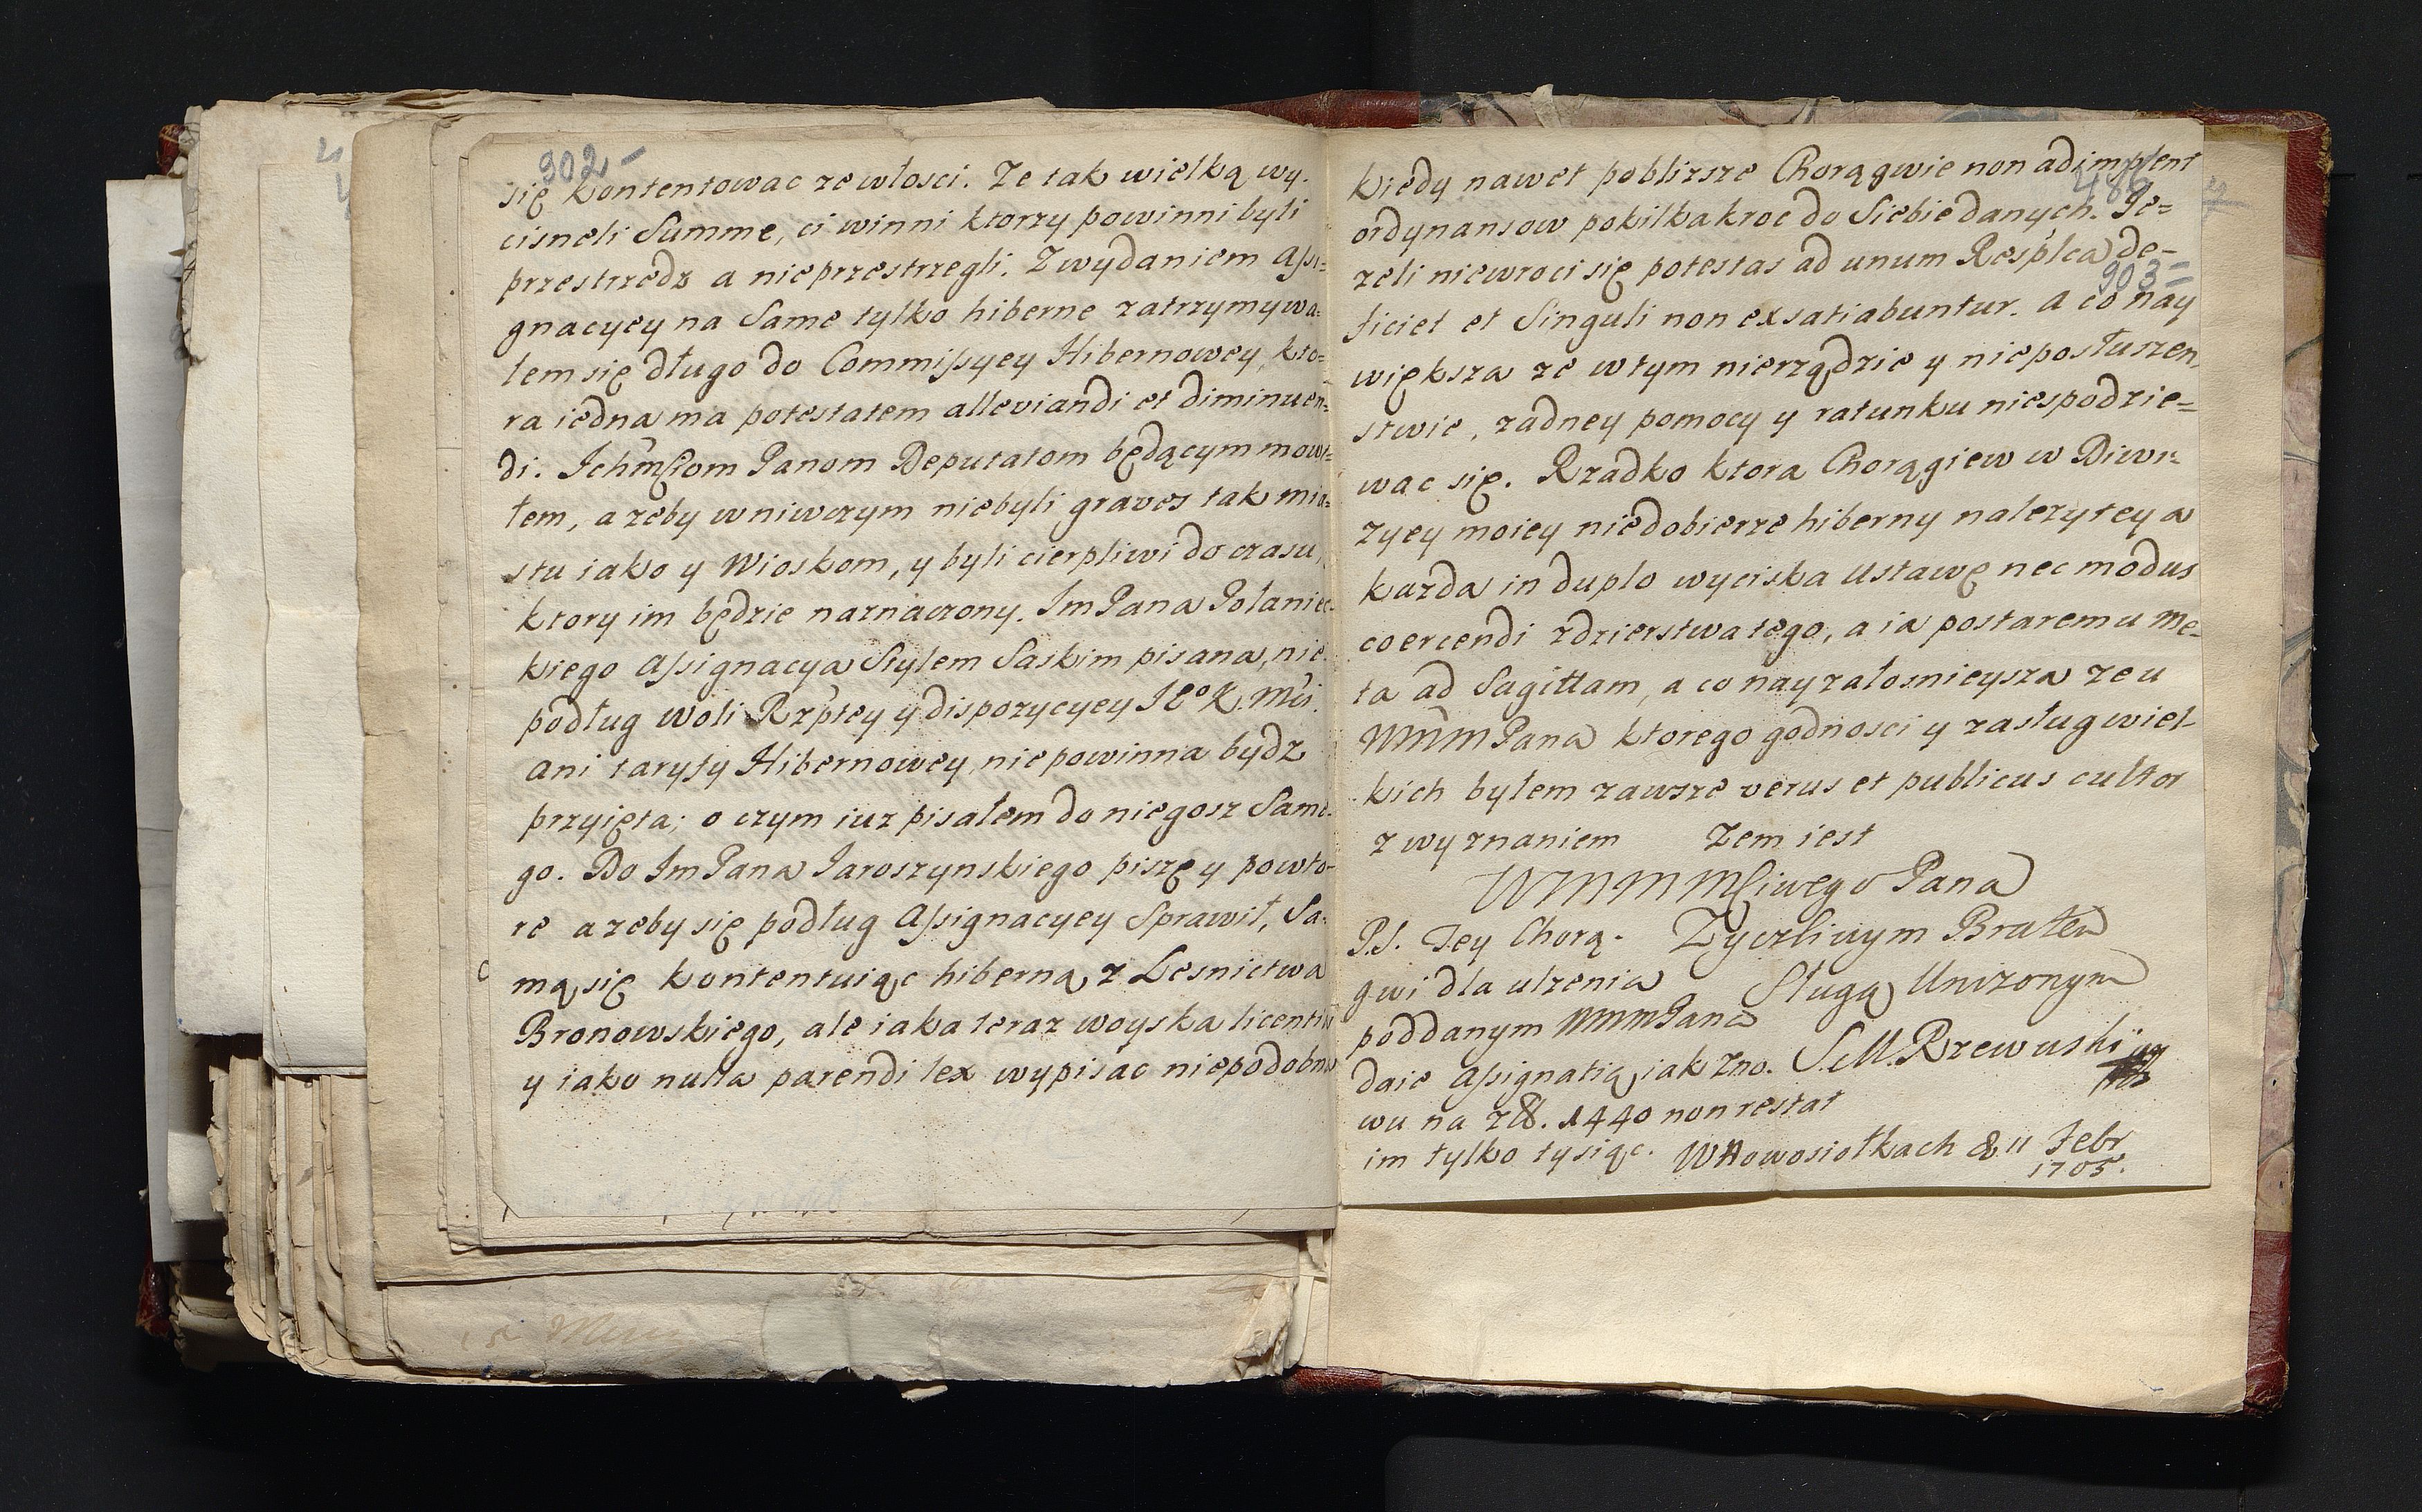 902
się kontentowac ze włosci. Ze tak wielką wy-
cisneli Summe, ci winni ktorzy powinni byli
przestrzedz a nieprzestrzegli. Z wydaniem Assi=
gnacyey na Same tylko hiberne zatrzymywa=
łem się długo do Commissyey Hibernowey, kto=
ra iedna ma potestatem alleviandi et diminuen=
di. Ichmciom Panom Deputatom będącym mowi=
łem, a zeby w niwczym niebyli graves tak mia=
stu iako y Wioskom, y byli cierpliwi do czasu,
ktory im będzie naznaczony. Im Pana Połaniec-
kiego Assignacya Stylem Saskim pisana, nie
podług woli Rzptey y dispozycyey Igo K. Mci.
ani taryfy Hibernowey, nie powinna bydz
przyięta; o czym iuz pisałem do niegosz Same-
go. Do Im Pana Jaroszynskiego piszę y powto-
re a zeby się podług Assignacyey Sprawił, Sa-
mą się kontentuiąc hiberną z Lesnictwa
Bronowskiego, ale iaka teraz woyska licentia
y iako nulla parendi lex wypisac niepodobna
486
903
kiedy nawet pobliższe Chorągwie non adimplent
ordynansow pokilkakroc do Siebie danych. Je=
zeli niewroci się potestas ad unum Resplca de-
ficiet et Singuli non exsatiabuntur. a co nay
większa ze w tym nierządzie y nieposłuszen,
stwie, zadney pomocy y ratunku niespodzie=
wac się. Rzadko ktora Chorągiew w Diwi-
zyey moiey niedobierze hiberny nalezytey a
kazda in duplo wyciska Ustawę nec modus
coercendi zdzierstwa tego, a ia postaremu me-
ta ad Sagittam, a co nayzałosnieysza ze u
WMM Pana ktorego godnosci y zasług wiel-
kich byłem zawsze verus et publicus cultor
z wyznaniem Zem iest
WMM Mciwego Pana
Zyczliwym Bratem
Sługą Unizonym
S.M. Rzewuski
P.S. Tey Chorą-
gwi dla ulzenia
poddanym WMM Pana
daie Assignatią iak zno-
wu na zł. 1440 non restat
im tylko tysiąc.
W Nowosiołkach d 11 Febr
1705.